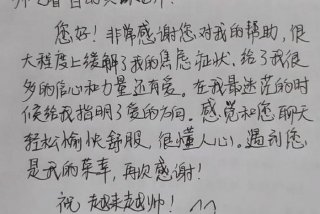 您好！非常感谢您对我的帮助，很
大程度上缓解了我的焦虑症状，给了我很
多的信心和力量还有爱。在我最迷茫的时
候给我指明了爱的方向。感觉和您聊天
轻松愉快舒服，很懂人心。遇到您
是我的荣幸，再次感谢！
祝 越来越帅！^^